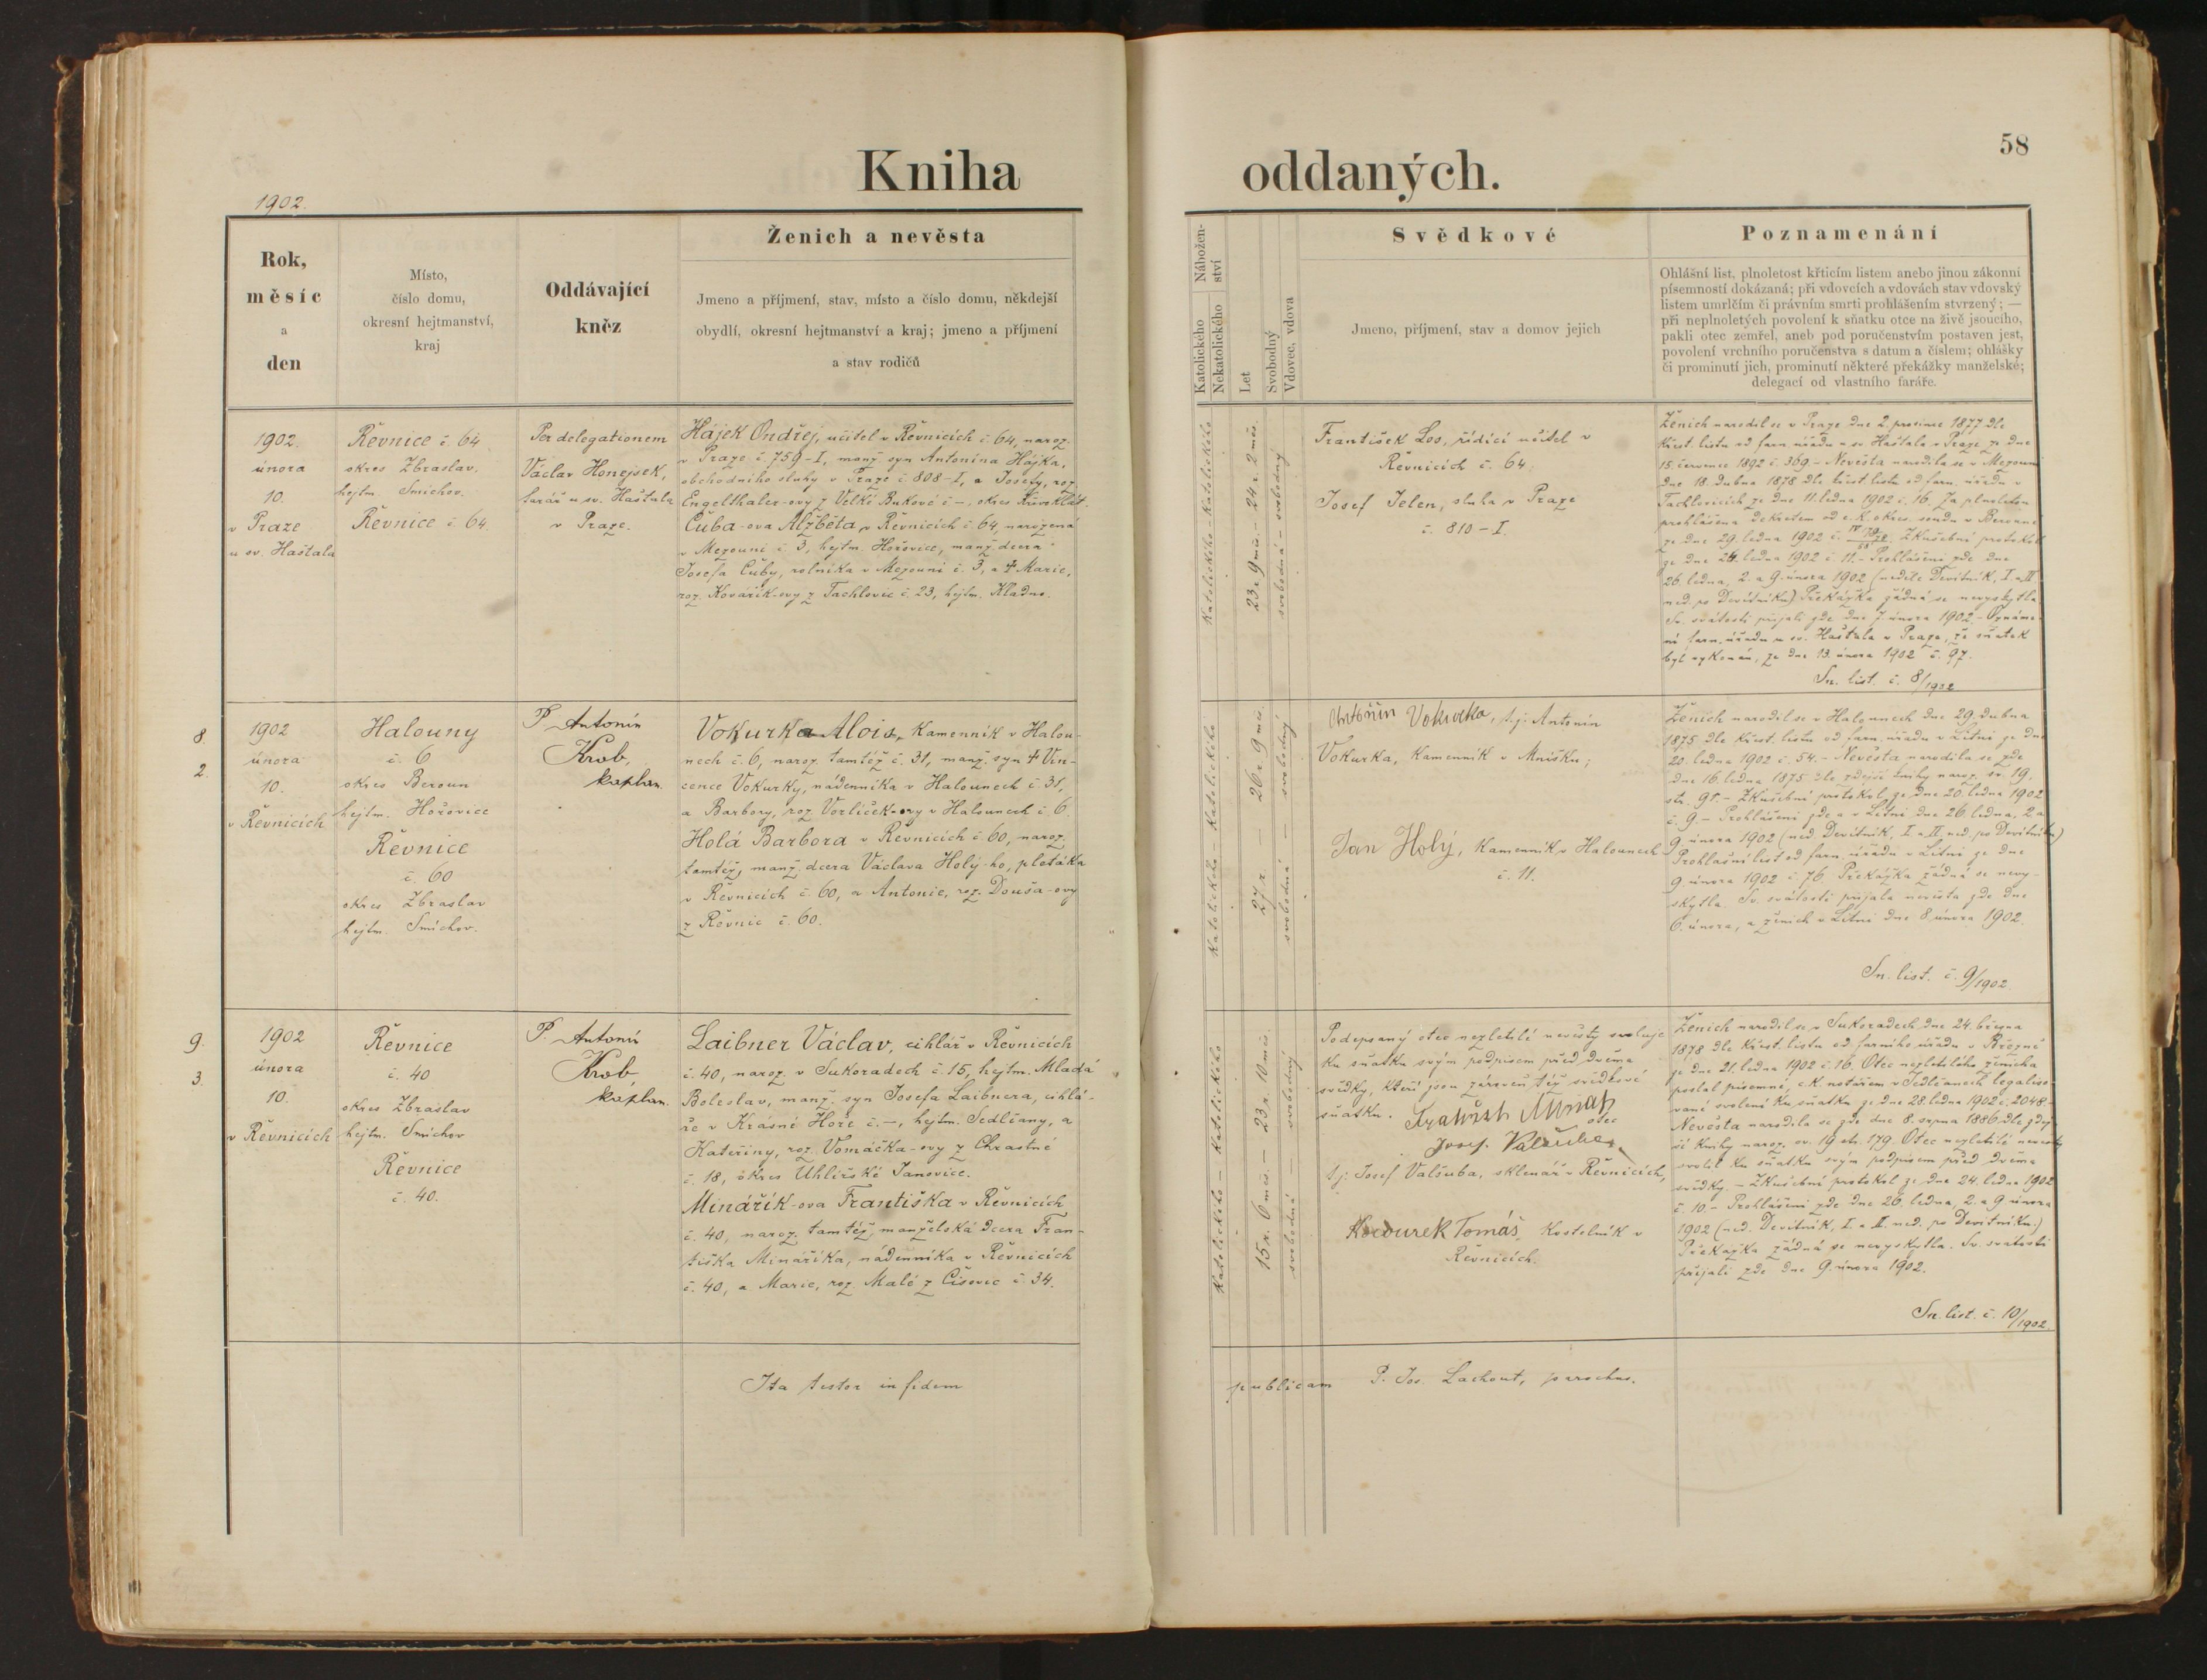 Kniha
1902.
Rok,
měsíc
a
den
Místo,
číslo domu,
okresní hejtmanství,
kraj
Oddávající
kněz
Ženich a nevěsta
Jmeno a příjmení, stav, místo a číslo domu, někdejší
obydlí, okresní hejtmanství a kraj; jmeno a příjmení
a stav rodičů
1902.
února
10.
v Praze
u sv. Haštala
Řevnice č. 64
okres Zbraslav,
hejtm. Smíchov.
Řevnice č. 64
Per delegationem
Václav Honejsek,
farář u sv. Haštala
v Praze.
Hájek Ondřej, učitel v Řevnicích č. 64, naroz.
v Praze č. 759-I, manž. syn Antonína Hájka,
obchodního sluhy v Praze č. 808-I, a Josefy, roz.
Engelthaler-ovy z Velké Bukové č. –, okres Křivoklát.
Čuba-ova Alžběta v Řevnicích č. 64, narozená
v Mezouni č. 3, hejtm. Hořovice, manž. dcera
Josefa Čuby, rolníka v Mezouni č. 3, a † Marie,
roz. Kovařík-ovy z Tachlovic č. 23, hejtm. Kladno.
8.
2.
1902
února
10.
v Řevnicích
Halouny
č. 6
okres Beroun
hejtm. Hořovice
Řevnice
č. 60
okres Zbraslav
hejtm. Smíchov.
P. Antonín
Krob,
kaplan.
Vokurka Alois, kamenník v Halou-
nech č. 6, naroz. tamtéž č. 31, manž. syn † Vin-
cence Vokurky, nádenníka v Halounech č. 31,
a Barbory, roz. Vorlíček-ovy v Halounech č. 6.
Holá Barbora v Řevnicích č. 60, naroz.
tamtéž, manž. dcera Václava Holý-ho, pletáka
v Řevnicích č. 60, a Antonie, roz. Douša-ovy
z Řevnic č. 60.
9.
3.
1902
února
10.
v Řevnicích
Řevnice
č. 40
okres Zbraslav
hejtm. Smíchov
Řevnice
č. 40.
P. Antonín
Krob,
kaplan.
Laibner Václav, cihlář v Řevnicích
č. 40, naroz. v Sukoradech č. 15, hejtm. Mladá
Boleslav, manž. syn Josefa Laibnera, cihlá-
ře v Krásné Hoře č. –, hejtm. Sedlčany, a
Kateřiny, roz. Vomáčka-ovy z Chrastné
č. 18, okres Uhlířské Janovice.
Minářík-ova Františka v Řevnicích
č. 40, naroz. tamtéž, manželská dcera Fran-
tiška Mináříka, nádenníka v Řevnicích
č. 40, a Marie, roz. Malé z Čisovic č. 34.
Ita testor in fidem
oddaných.
58
Nábožen-
ství
Katolického
Nekatolického
Let
Svobodný
Vdovec, vdova
Svědkové
Jmeno, příjmení, stav a domov jejich
Poznamenání
Ohlášní list, plnoletost křticím listem anebo jinou zákonní
písemností dokázaná; při vdovcích a vdovách stav vdovský
listem umrlčím či právním smrti prohlášením stvrzený; —
při neplnoletých povolení k sňatku otce na živě jsoucího,
pakli otec zemřel, aneb pod poručenstvím postaven jest,
povolení vrchního poručenstva s datum a číslem; ohlášky
či prominutí jich, prominutí některé překážky manželské;
delegací od vlastního faráře.
Katolického – Katolického
23 r. 9 měs. – 24 r. 2 měs.
svobodná – svobodný
František Los, řídící učitel v
Řevnicích č. 64.
Josef Jelen, sluha v Praze
č. 810-I.
Ženich narodil se v Praze dne 2. prosince 1877 dle
křest. listu od farn. úřadu u sv. Haštala v Praze ze dne
15. července 1892 č. 369. – Nevěsta narodila se v Mezouni
dne 18. dubna 1878 dle křest. listu od farn. úřadu v
Tachlovicích ze dne 11. ledna 1902 č. 16. Za plnoletou
prohlášena dekretem od c. k. okres. soudu v Berouně
ze dne 29. ledna 1902 č. Zkušební protokol
ze dne 24. ledna 1902 č. 11. – Prohlášeni zde dne
26. ledna, 2. a 9. února 1902 (neděle Devítník, I. a II.
ned. po Devítníku.) Překážka žádná se nevyskytla.
Sv. svátosti přijali zde dne 7. února 1902. – Oznáme-
ní farn. úřadu u sv. Haštala v Praze, že sňatek
byl vykonán, ze dne 13. února 1902 č. 97.
Sn. list. č. 8/1902
Katolického – Katolického
27 r. — 26 r. 9 měs.
svobodná — svobodný
Antonín Vokurka, t.j. Antonín
Vokurka, kamenník v Mníšku;
Jan Holý, kamenník v Halounech
č. 11.
Ženich narodil se v Halounech dne 29. dubna
1875 dle křest. listu od farn. úřadu v Litni ze dne
20. ledna 1902 č. 54. – Nevěsta narodila se zde
dne 16. ledna 1875 dle zdejší knihy naroz. sv. 19,
str. 91. – Zkušební protokol ze dne 20. ledna 1902
č. 9. – Prohlášeni zde a v Litni dne 26. ledna, 2. a
9. února 1902 (ned. Devítník, I. a II. ned. po Devítníku)
Prohlašní list od farn. úřadu v Litni ze dne
9. února 1902 č. 76. Překážka žádná se nevy-
skytla. Sv. svátosti přijala nevěsta zde dne
6. února, a ženich v Litni dne 8. února 1902.
Sn. list. č. 9/1902
Katolického – Katolického
15 r. 6 měs. – 23 r. 10 měs.
svobodná — svobodný
Podepsaný otec nezletilé nevěsty svoluje
ku sňatku svým podpisem před dvěma
svědky, kteří jsou zároveň též svědkové
sňatku.
otec
Josef Valšuba
t.j. Josef Valšuba, sklenář v Řevnicích,
Kocourek Tomáš, kostelník v
Řevnicích.
Ženich narodil se v Sukoradech dne 24. března
1878 dle křest. listu od farního úřadu v Březně
ze dne 21. ledna 1902 č. 16. Otec nezletilého ženicha
poslal písemné, c. k. notářem v Sedlčanech legaliso-
vané svolení ku sňatku ze dne 28. ledna 1902 č. 2048. –
Nevěsta narodila se zde dne 8. srpna 1886 dle zdej-
ší knihy naroz. sv. 19 str. 179. Otec nezletilé nevěsty
svolil ku sňatku svým podpisem před dvěma
svědky. – Zkušební protokol ze dne 24. ledna 1902
č. 10. – Prohlášeni zde dne 26. ledna, 2. a 9. února
1902 (ned. Devítník, I. a II. ned. po Devítníku.)
Překážka žádná se nevyskytla. Sv. svátosti
přijali zde dne 9. února 1902.
Sn. list. č. 10/1902.
publicam P. Jos. Lachout, parochus.